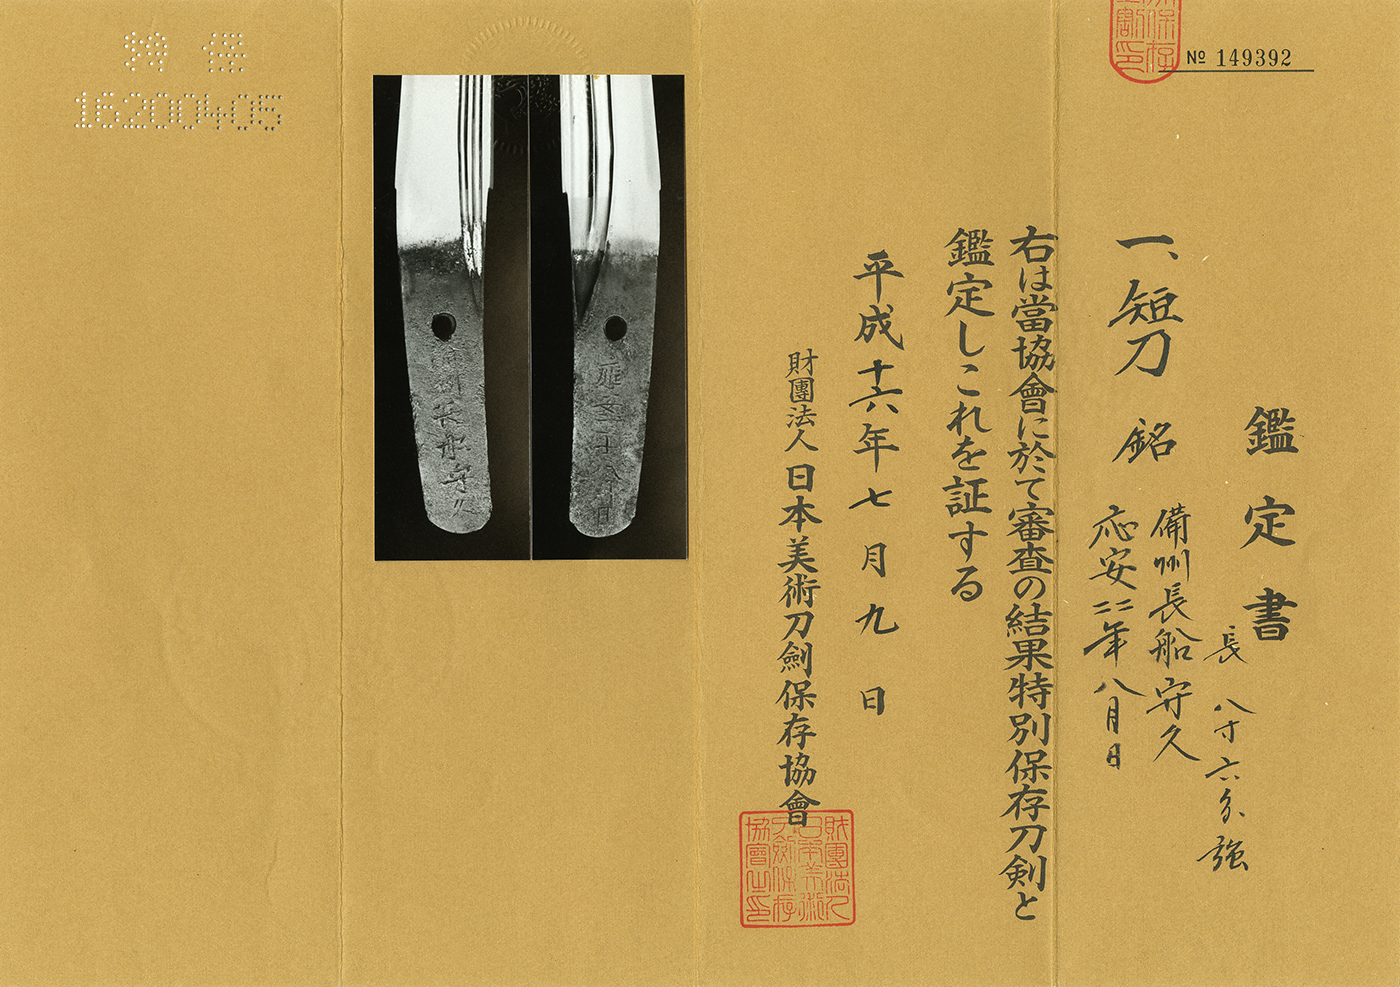 № 149392
鑑定書
長 八寸六分強
一、短刀 銘 備州長船守久
応安二二年八月日
右は當協會に於て審査の結果特別保存刀剣と
鑑定しこれを証する
平成十六年七月九日
財團法人日本美術刀劍保存協會
財團法人
日本美術
刀劍保存
協會之印
特保
16200405
備州長船守久